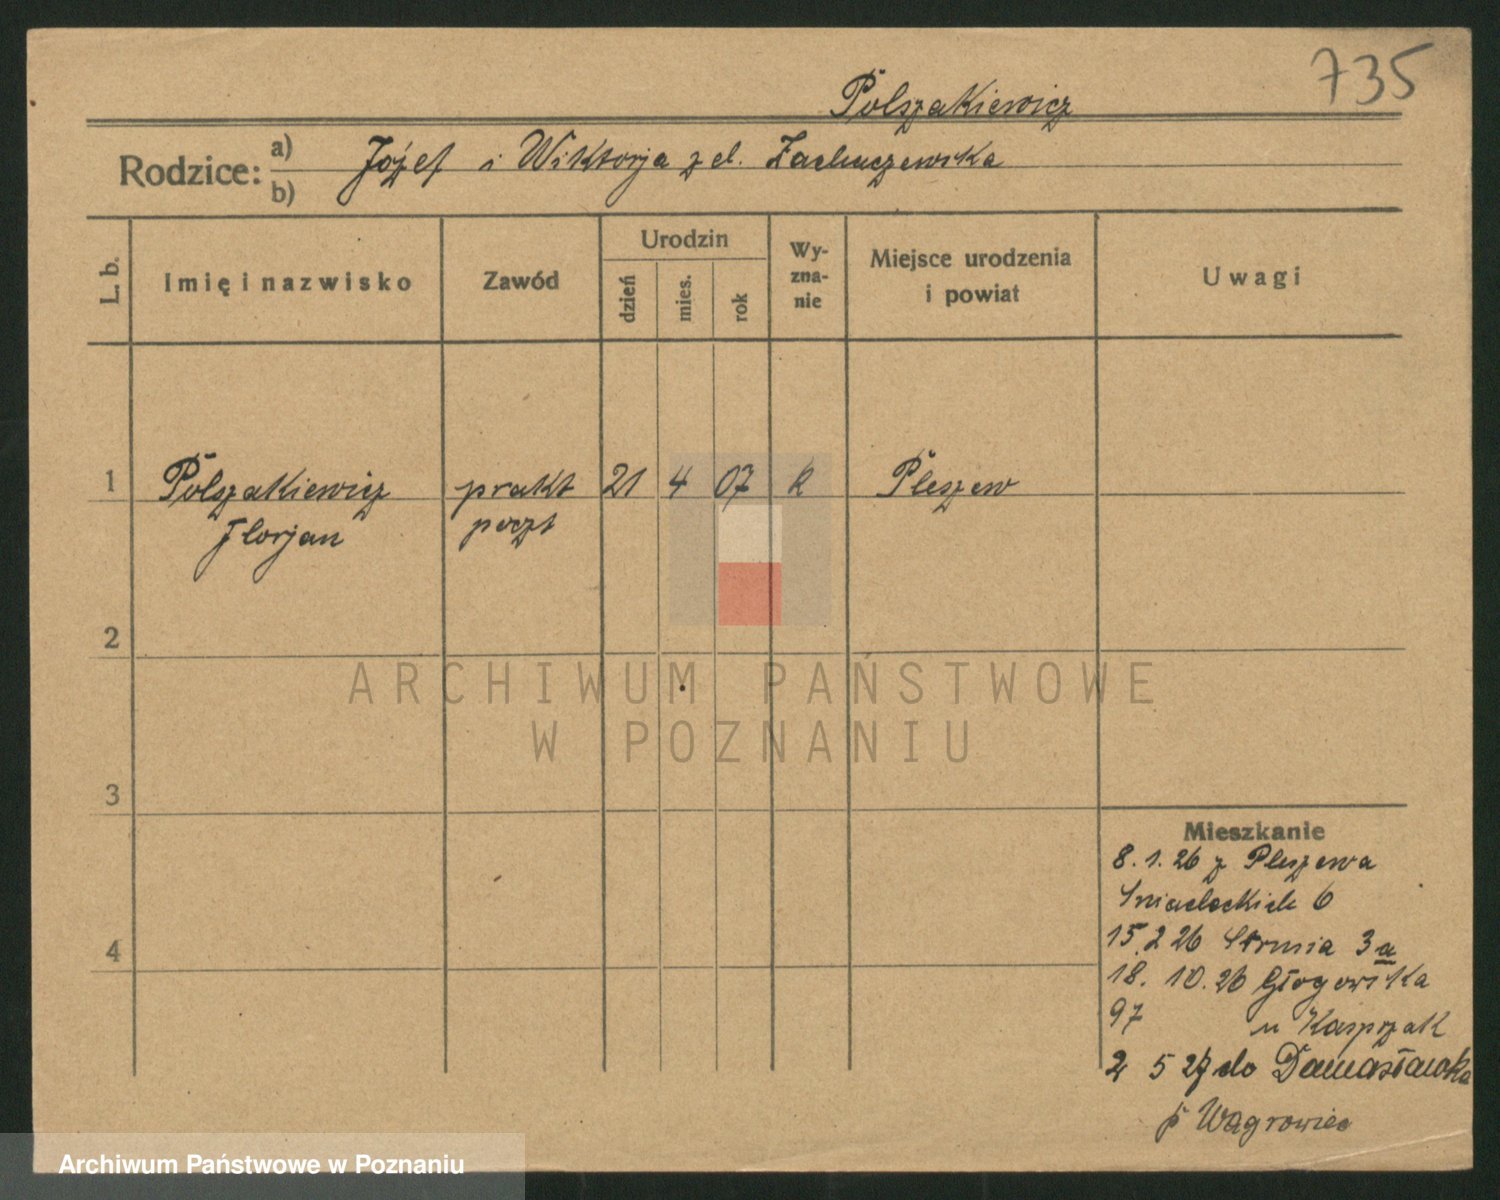 735
Polszakiewicz
Rodzice:
a) Józef i Wiktorja z d.
b)
L. b.
Imię i nazwisko
Zawód
Urodzin
dzień
mies.
rok
Wy-
zna-
nie
Miejsce urodzenia
i powiat
Uwagi
1 Polszakiewicz prakt 21 4 07 k Pleszew
Florjan poczt
2
3
4
ARCHIWUM PAŃSTWOWE
W POZNANIU
Mieszkanie
8.1.26 z Pleszewa
Śniadeckich 6
15.2 26 Strusia 3a
18. 10. 26 Głogowska
97 u Kasprzak
2 5 27 do Damasławka
p Wągrowiec
Archiwum Państwowe w Poznaniu